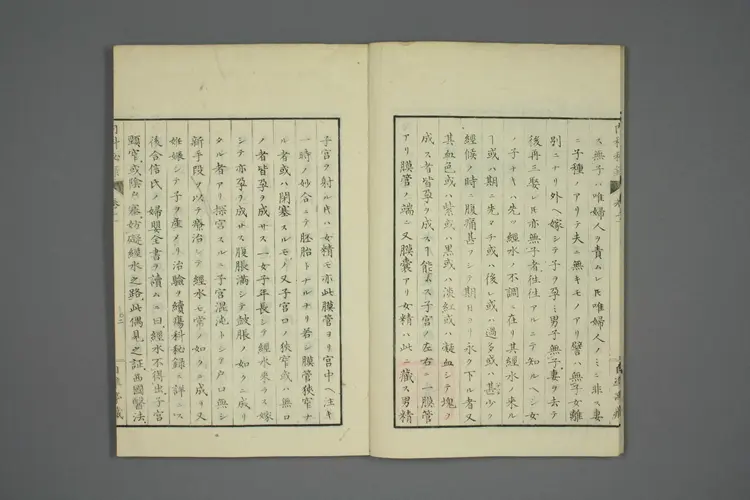 ス無子ハ唯婦人ヲ責ムレ𪜈唯婦人ノミニ非ス妻
ニ子種ノアリテ夫ニ無キモノアリ譬ハ無子女離
別ニナリ外ヘ嫁シテ子ヲ孕ミ男子無子妻ヲ去テ
後再三娶レ𪜈亦無子者往往アルニテ知ルヘシ女
ノ子ナキハ先ツ經水ノ不調ニ在リ其經水ノ來ル
ヿ或ハ期ニ先タチ或ハ後レ或ハ過多或ハ甚少ク
經候ノ時ニ腹痛甚シテ期日ヨリ永ク下ル者又
其血色或ハ紫或ハ黒或ハ淡紅或ハ凝血シテ塊ヲ
成ス者皆孕ヲ成スヿ能ハス子宮ノ左右ニ一膜管
アリ膜管ノ端ニ又膜嚢アリ女精ハ此ニ藏ス男精
子宮ヲ射ル𪜈ハ女精モ亦此膜管ヨリ宮中ヘ注キ
一時ノ妙合ニテ胚胎トナルナリ若シ膜管狹窄ナ
ル者或ハ閉塞スルモノ又子宮口ノ狹窄或ハ無口
ノ者皆孕ヲ成サス一女子年長シテ經水來ラス嫁
シテ亦孕ヲ成サス腹脹滿シテ鼓脹ノ如クニ成リ
タル者アリ探宮スルニ子宮混沌トシテ戸口無シ
新手段ヲ以テ療治シテ經水モ常ノ如クニ成リ又
妊娠シテ子ヲ産メリ治驗ヲ續瘍科秘録ニ詳ニス
後合信氏ノ婦嬰全書ヲ讀ムニ曰經水不得出子宮
頸窄或陰 塞妨礙經水之路此偶見之証西國醫法